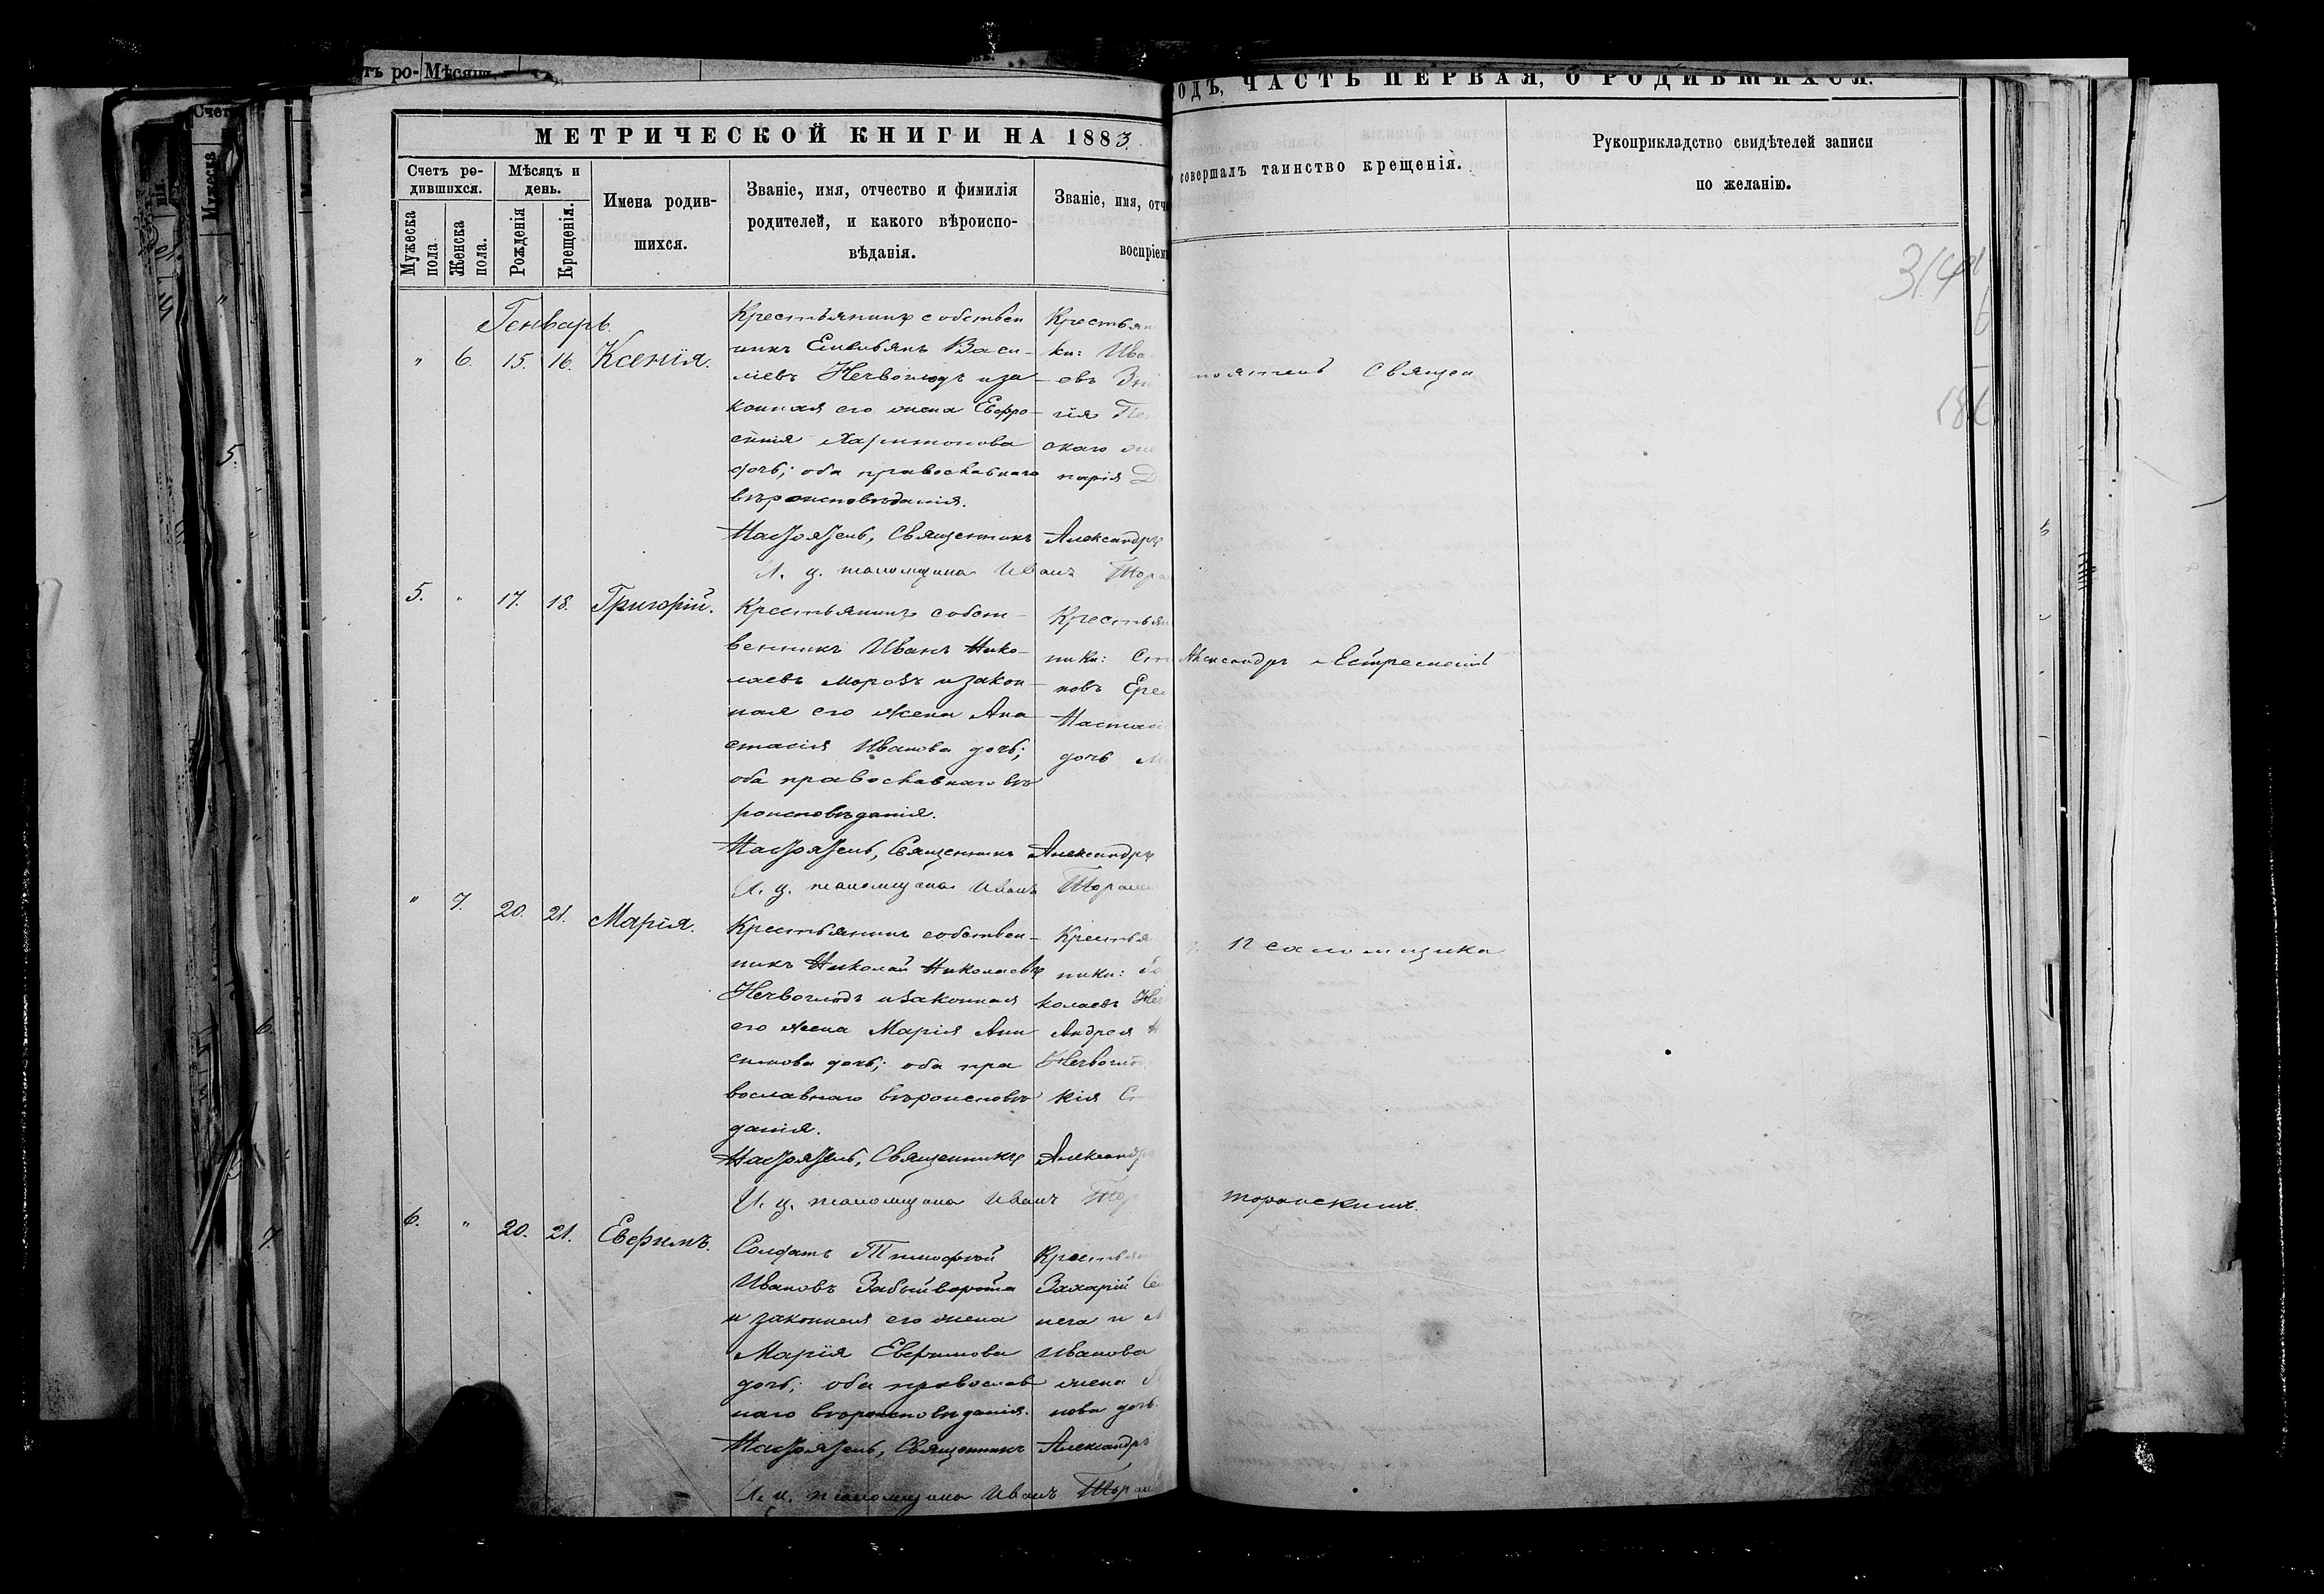 тъ ро- Мѣсяц
Счет
Мужеска
МЕТРИЧЕСКОЙ КНИГИ НА 1883.
ОДЪ, ЧАСТЬ ПЕРВАЯ, О РОДИВШИХСЯ.
Счетъ ро-
дившихся.
Мѣсяцъ и
день.
Мужеска
пола.
Женска
пола.
Рожденія
Крещенія.
Имена родив-
шихся.
Званіе, имя, отчество и фимилія
родителей, и какого вѣроиспо-
вѣданія.
Званіе, имя, отче
воспріем
совершалъ таинство крещенія.
Рукоприкладство свидѣтелей записи
по желанію.
Генварь.
" 6. 15. 16. Ксенія.
Крестьянинъ собствен
никъ Емельянъ Васи-
ліевъ Нечвоглодъ и за-
конная его жена Евфро-
синія Харитонова
дочь; оба православнаго
вѣроисповѣданія.
Крестьян
ки: Ива
евъ
гія
скаго
нарія
Настоятель, Священникъ Александръ
И. д. псаломщика Иванъ Тора
5. " 17. 18. Григорій.
Крестьянинъ собст-
венникъ Иванъ Нико-
лаевъ Морозъ и закон-
ная его жена Ана-
стасія Иванова дочь;
оба православнаго вѣ
роисповѣданія.
Крестьян
ники:
новъ Ере
Настас
дочь М
Настоятель, Священникъ Александръ
И. д. псаломщика Иванъ Торан
" 7. 20. 21. Марія.
Крестьянинъ собствен-
никъ Николай Николаевъ
Нечвоглодъ и законная
его жена Марія Ани
симова дочь; оба пра
вославнаго вѣроисповѣ
данія.
Крестья
ники:
колаевъ Неч
Андрея
Нечвоглод
кія
Настоятель, Священникъ Александр
И. д. псаломщика Иванъ Тор
6. " 20. 21. Евфимъ.
Солдатъ Тимофей
Ивановъ Забыйворота
и законная его жена
Марія Евфимова
дочь; оба православ
наго вѣроисповѣданія.
Крестьян
Захарій
нега и
Иванова
жена
нова дочь.
Настоятель, Священникъ Александръ
И. д. псаломщика Иванъ Торан
314
стоятель Священ
Александръ
псаломщика
Торанскій
5.
6.
7.